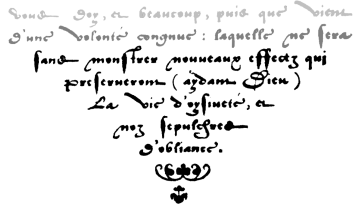 vous doy, et beaucoup, puis que vient
d'une volonté congnue : laquelle ne sera
sans monstrer nouveaux effectz qui
preserveront (aydant Dieu)
La vie d'oysiveté, et
noz sepulchres
d'obliance.